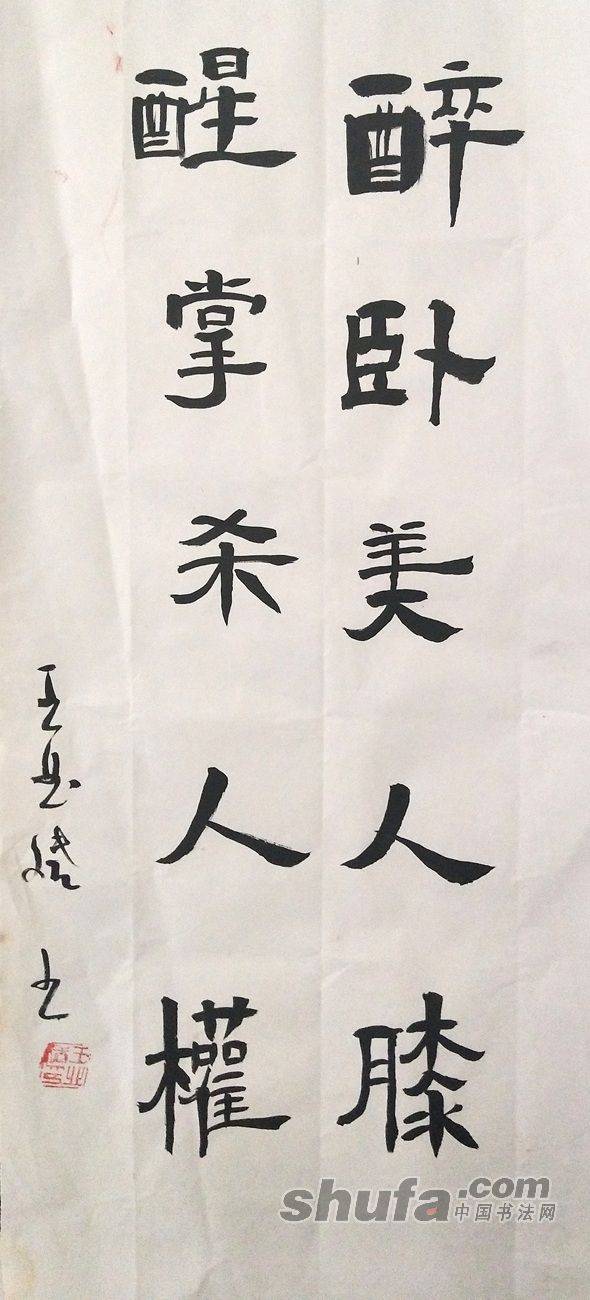 醉卧美人膝
醒掌杀人權
shufa.com
中国书法网